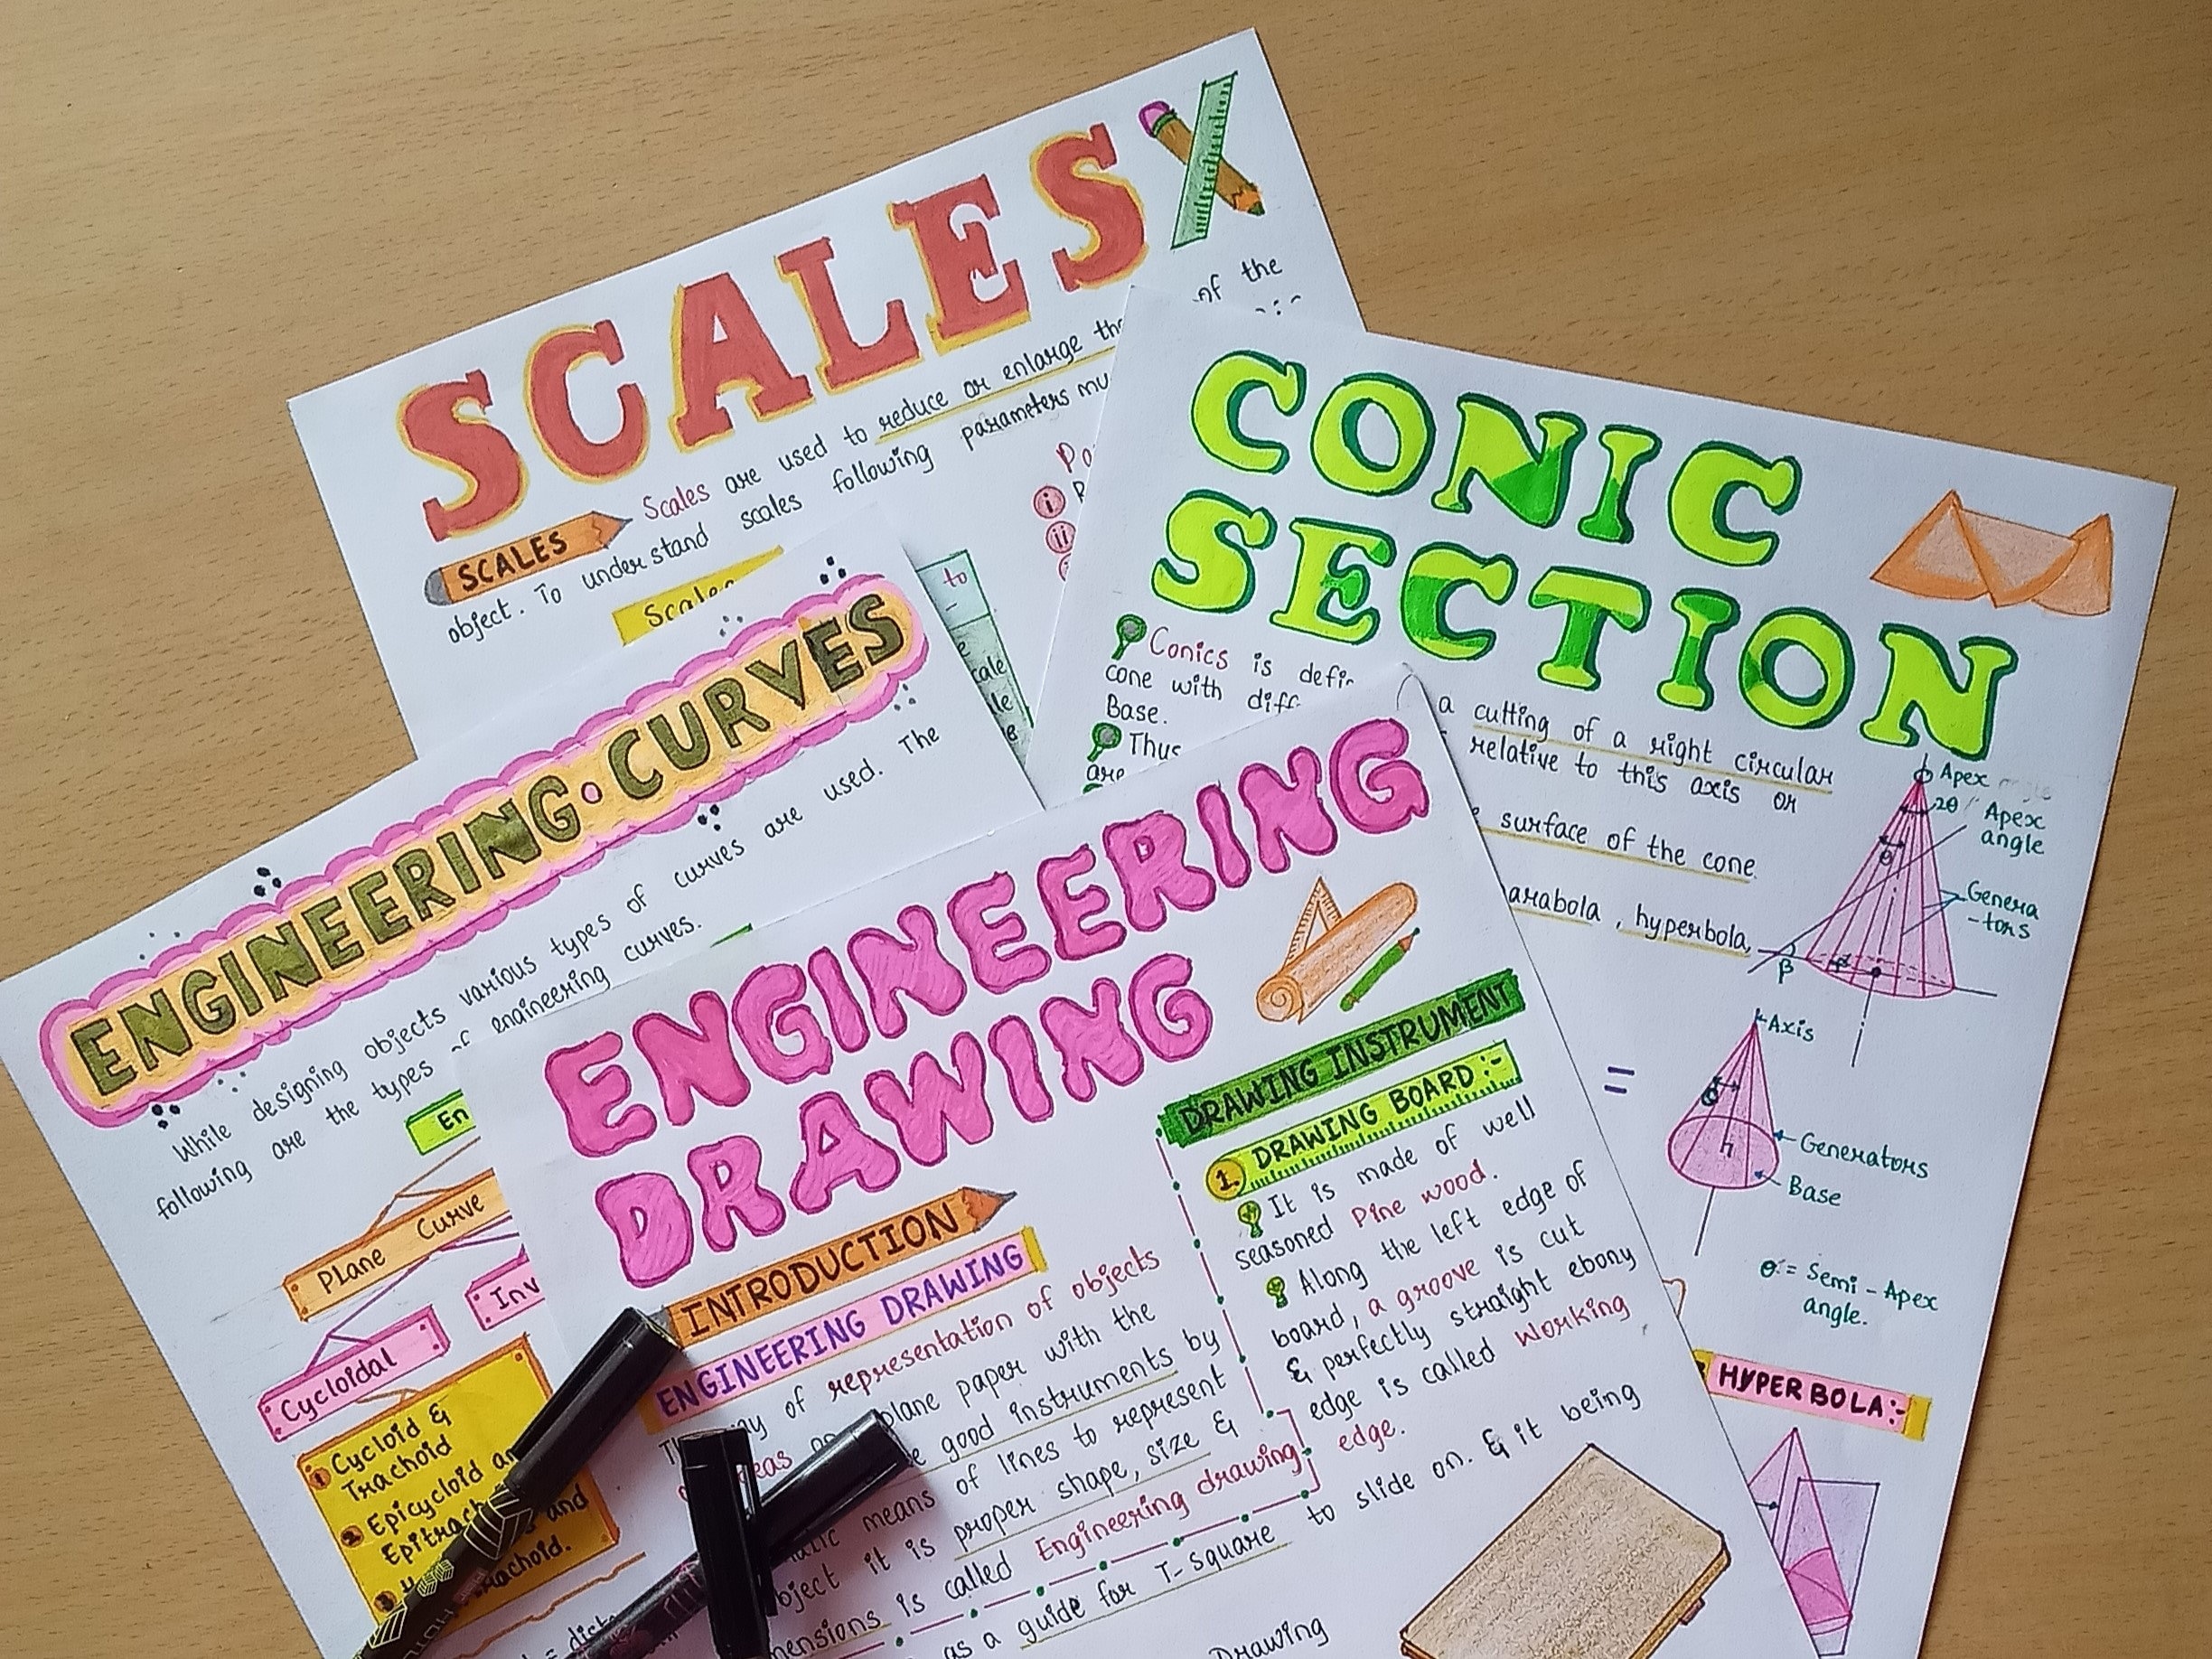 SCALES
SCALES
Scales are used to reduce or enlarge the
of the
object. To understand scales following parameters
Scales
i
ii
to
CONIC
SECTION
Conics is
a cutting of a right circular
cone with
relative to this axis or
Base.
Thus
are
surface of the cone
parabola, hyperbola,
Apex
2θ
Apex
angle
θ
Genera
-tors
β
Axis
θ
h
Generators
Base
=
θ = Semi - Apex
angle.
HYPERBOLA:-
ENGINEERING·CURVES
While designing objects various types of curves are used. The
following are the types of engineering curves.
En
Plane Curve
Inv
Cycloidal
1 Cycloid &
Trachoid
2 Epicycloid
3
and
ENGINEERING
DRAWING
INTRODUCTION
ENGINEERING DRAWING
of representation of objects
plane paper with the
good instruments by
means of lines to represent
object it is proper shape, size &
is called Engineering drawing
DRAWING INSTRUMENT
1. DRAWING BOARD:-
It is made of well
seasoned Pine wood.
Along the left edge of
board, a groove is cut
& perfectly straight ebony
edge is called working
edge.
as a guide for T-square to slide on. & it being
Drawing